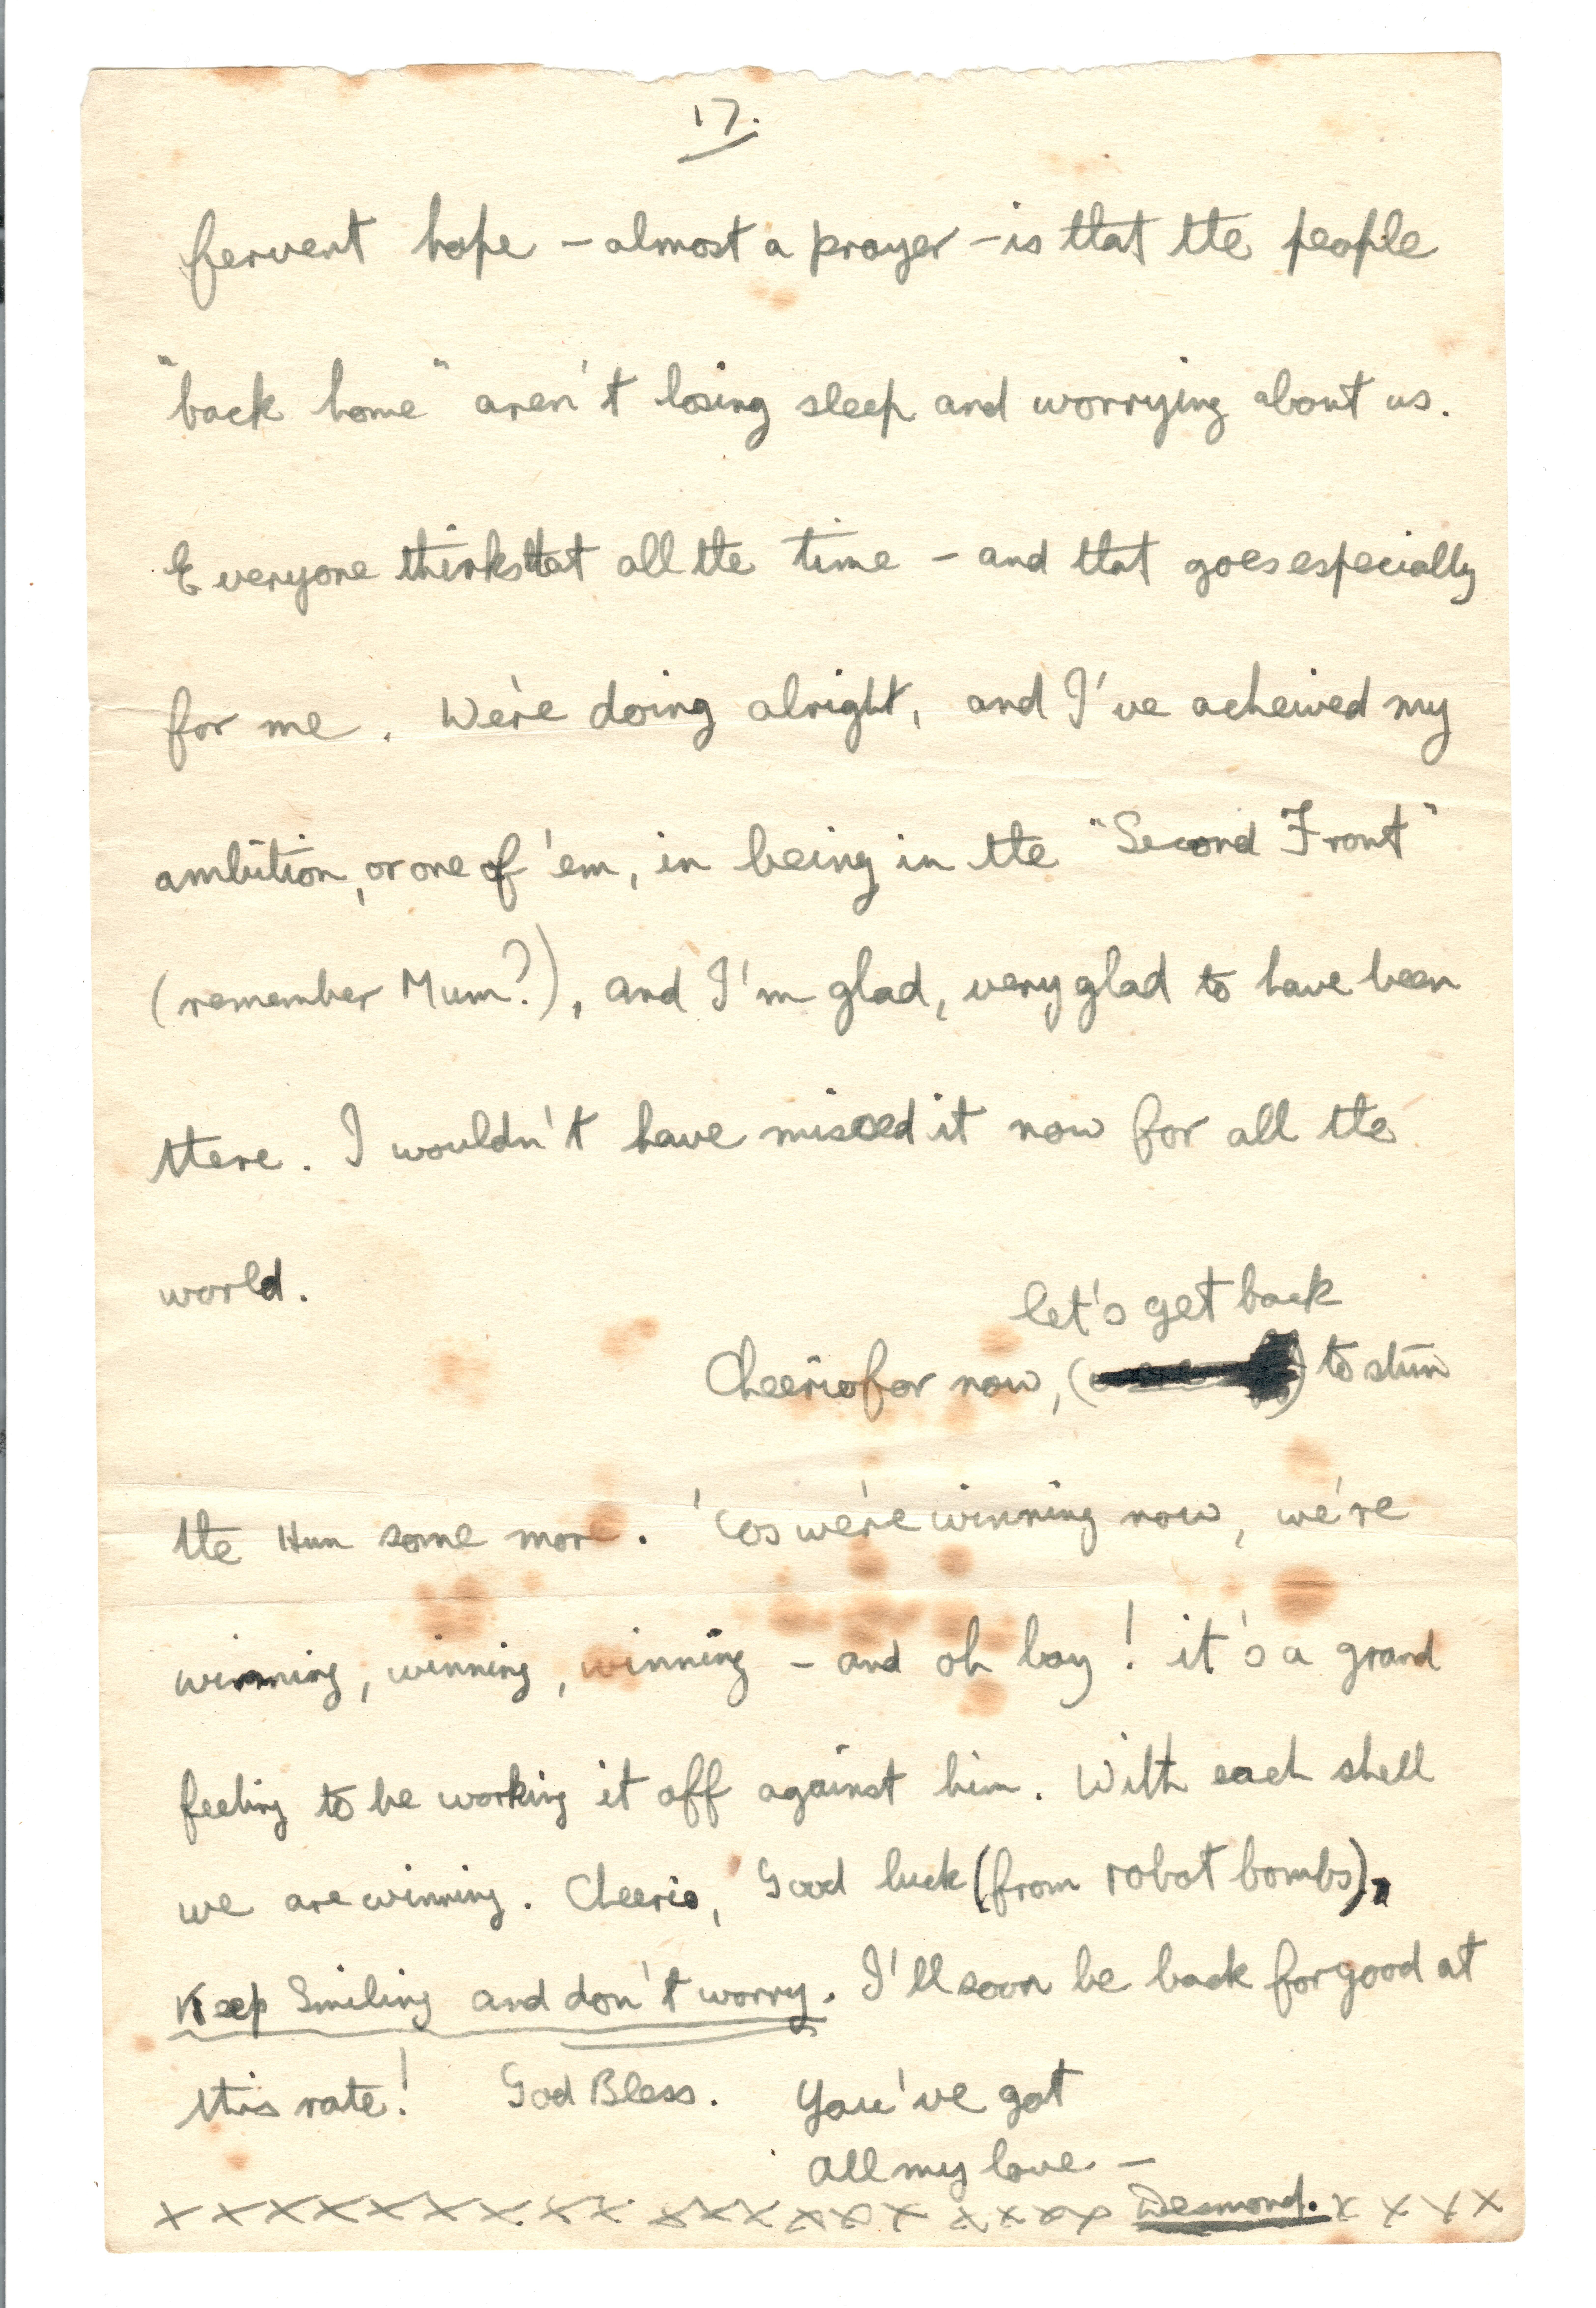 17.
fervent hope - almost a prayer - is that the people
"back home" aren't losing sleep and worrying about us.
Everyone thinks that all the time - and that goes especially
for me. We're doing alright, and I've acheived my
ambition, or one of 'em, in being in the "Second Front"
(remember Mum?), and I'm glad, very glad to have been
there. I wouldn't have missed it now for all the
world.
let's get back
Cheerio for now, ( ) to stun
the Hun some more. 'Cos we're winning now, we're
winning, winning, winning - and oh boy! it's a grand
feeling to be working it off against him. With each shell
we are winning. Cheerio, Good luck (from robot bombs),
Keep Smiling and don't worry. I'll soon be back for good at
this rate! God Bless. You've got
all my love. -
x x x x x x x x x x x x x x x x x x x x Desmond. x x x x